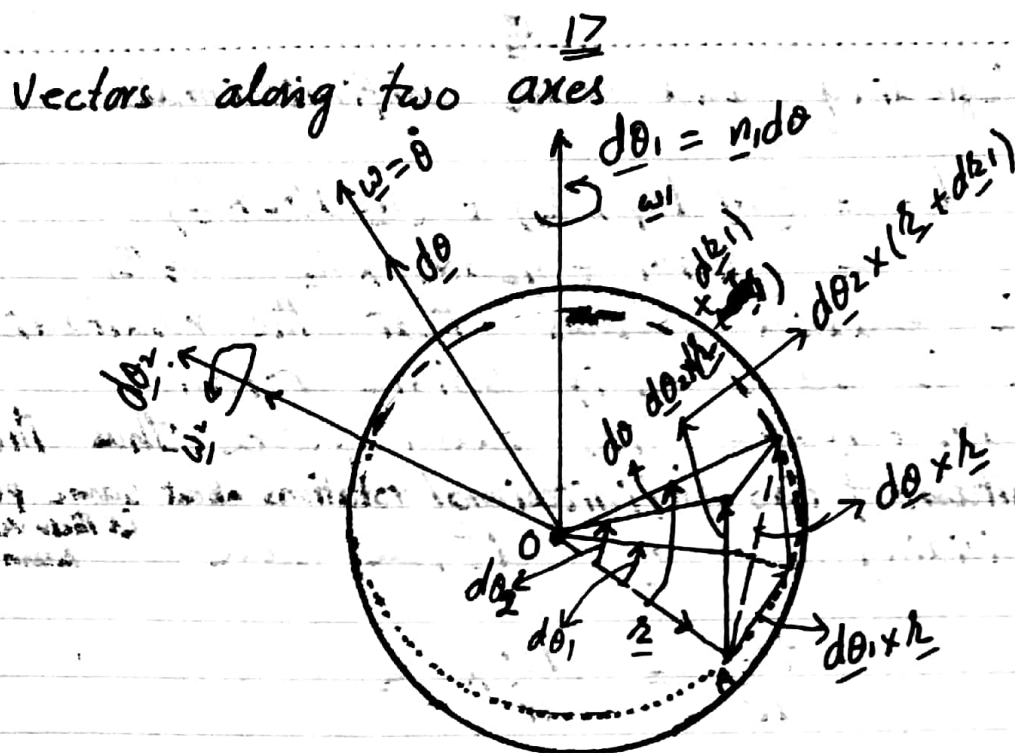 17
Vectors along two axes
dθ1 = n1dθ
ω1
ω = θ̇
dθ
dθ2
ω2
dθ2 × (r + dr1)
dθ2 × r
dθ
dθ × r
O
dθ2
dθ1
r
A
dθ1 × r